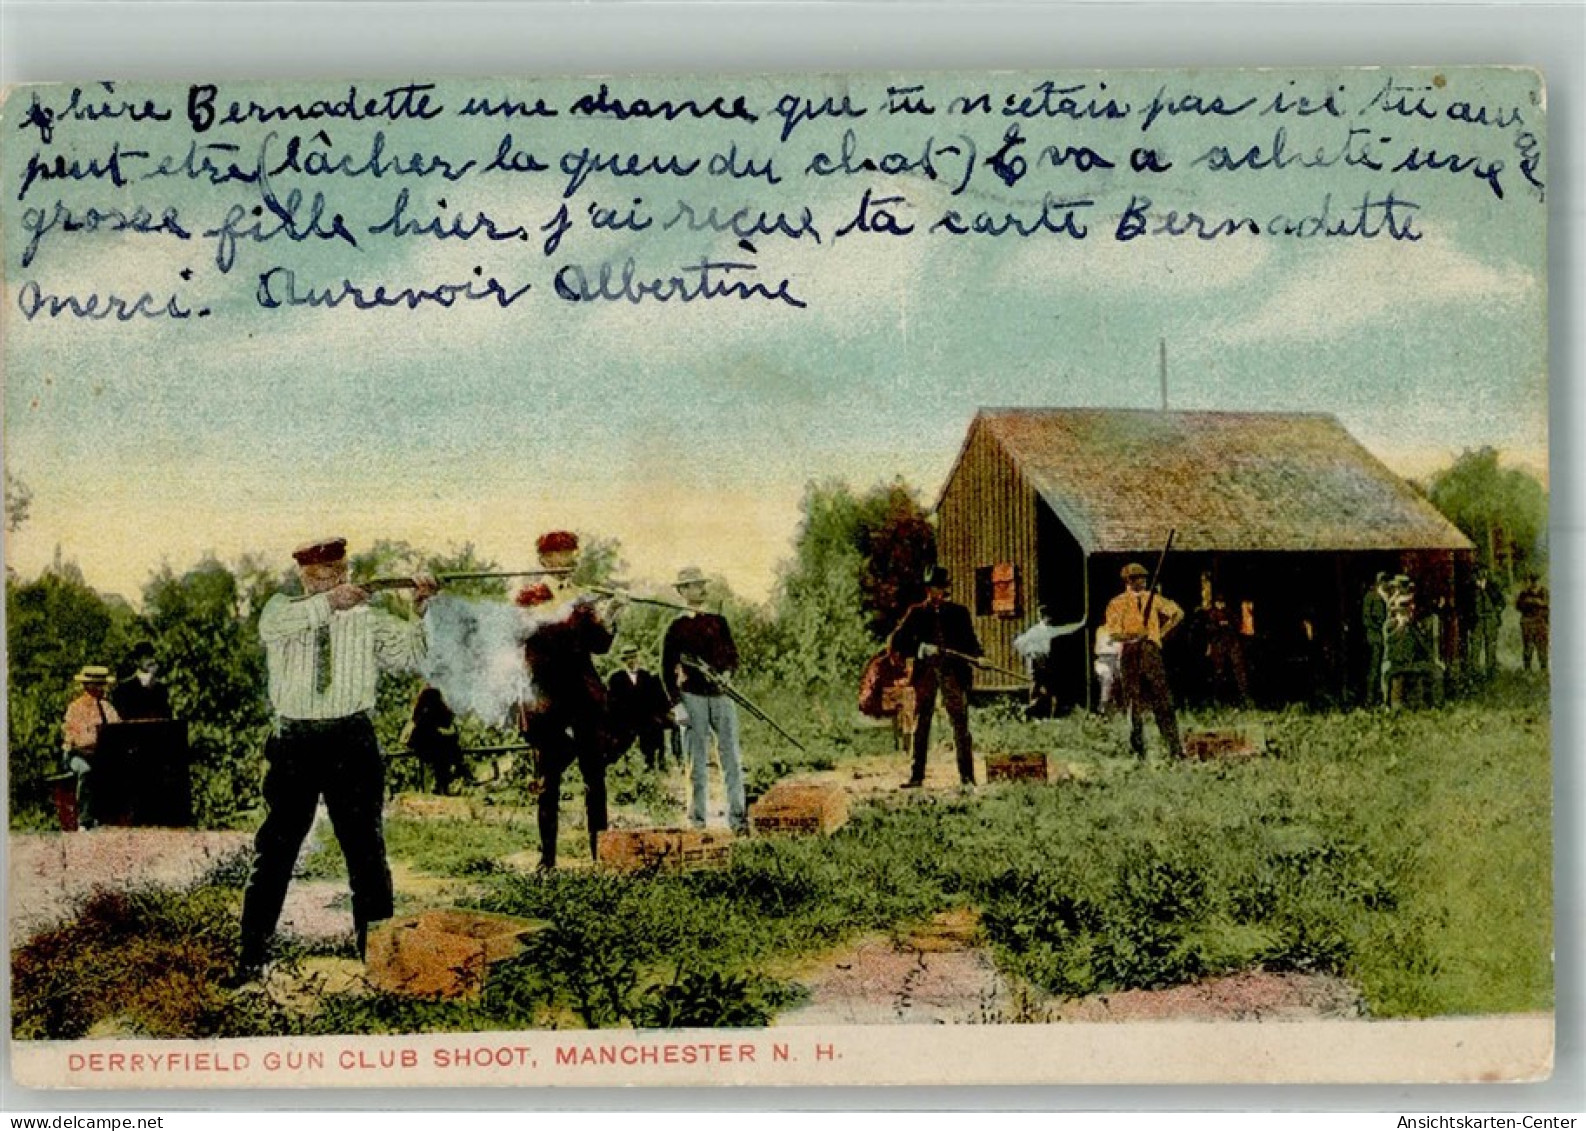 Chère Bernadette une chance que tu n'etais pas ici tu aurais
peut etre (lâcher la queu du chat) Eva a acheté une
grosse fille hier. j'ai reçue ta carte Bernadette
Merci. Aurevoir Albertine
DERRYFIELD GUN CLUB SHOOT, MANCHESTER N. H.
www.delcampe.net
Ansichtskarten-Center